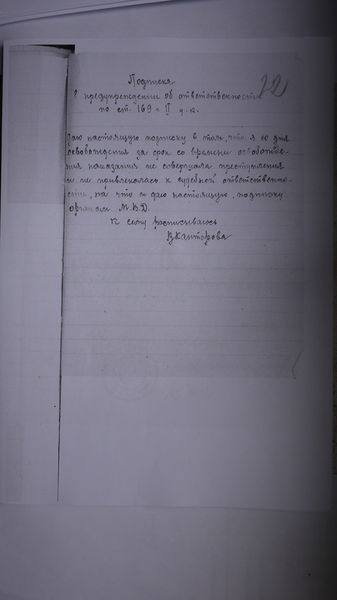 22
Подписка
о предупреждении об ответственности
по ст. 169 - II у.к.
Даю настоящую подписку в том, что я со дня
освобождения за срок со времени освобожде-
ния наказания не совершила преступления
и не привлекалась к судебной ответственно-
сти, на что и даю настоящую подписку
органам М.В.Д.
к сему расписываюсь
ВКантарова